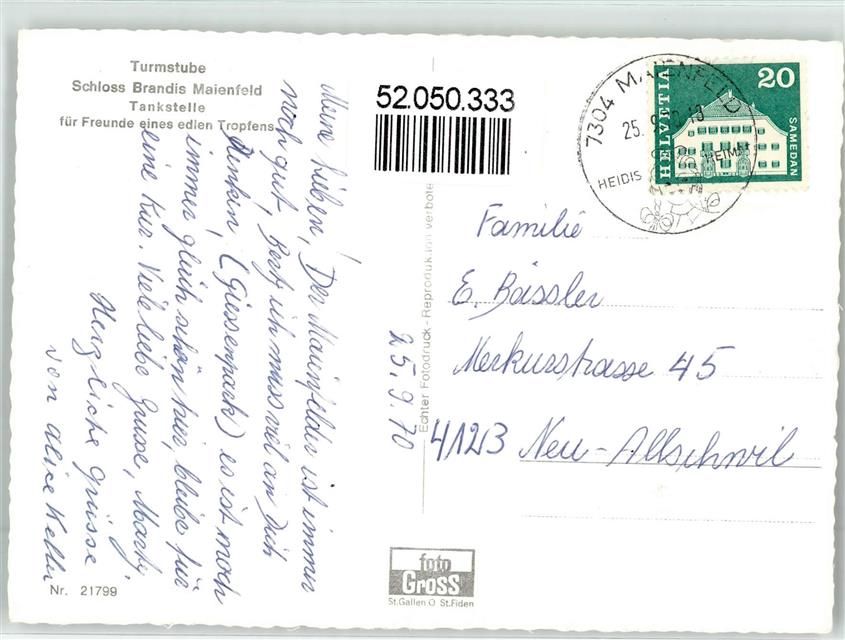 Turmstube
Schloss Brandis Maienfeld
Tankstelle
für Freunde eines edlen Tropfens
52.050.333
7304 MAIENFELD
25. 9.
HEIDIS HEIMAT
HELVETIA
20
SAMEDAN
Meine Lieben, Der Maienfelder ist immer
noch gut, Berty ich muss viel an Dich
denken, (Giessenpark) es ist noch
immer gleich schön hier, bleibe für
eine Kur. Viele liebe Grüsse, Marty,
Herzliche Grüsse
von Alice Keller
25.9.70
Echter Fotodruck - Reproduktion verboten
Familie
E. Bässler
Merkurstrasse 45
4123 Neu-Allschwil
foto
Gross
St.Gallen O St.Fiden
Nr. 21799